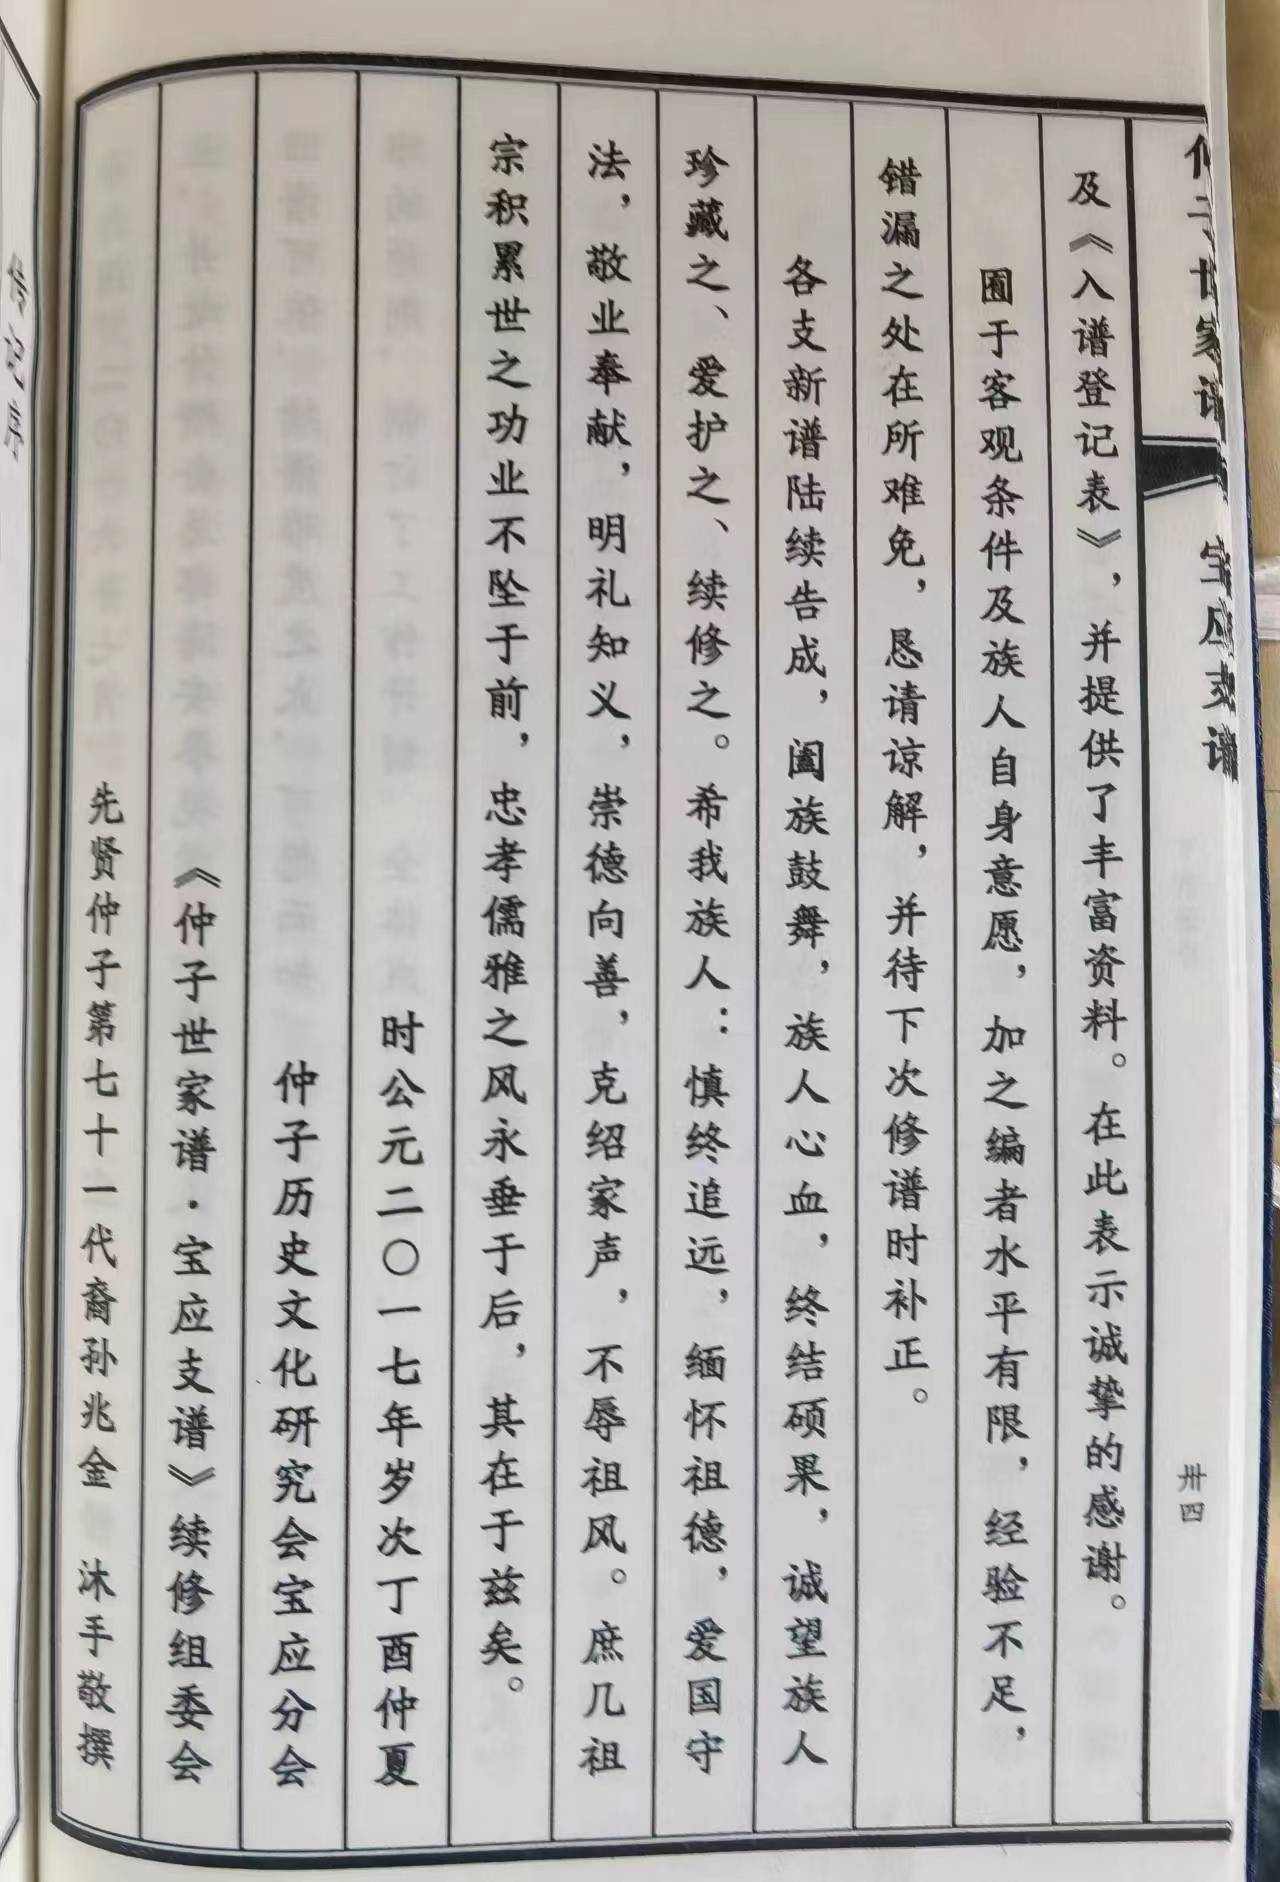 仲子世家谱 宝应支谱
卅四
及《入谱登记表》，并提供了丰富资料。在此表示诚挚的感谢。
囿于客观条件及族人自身意愿，加之编者水平有限，经验不足，
错漏之处在所难免，恳请谅解，并待下次修谱时补正。
各支新谱陆续告成，阖族鼓舞，族人心血，终结硕果，诚望族人
珍藏之、爱护之、续修之。希我族人：慎终追远，缅怀祖德，爱国守
法，敬业奉献，明礼知义，崇德向善，克绍家声，不辱祖风。庶几祖
宗积累世之功业不坠于前，忠孝儒雅之风永垂于后，其在于兹矣。
时公元二〇一七年岁次丁酉仲夏
仲子历史文化研究会宝应分会
《仲子世家谱·宝应支谱》续修组委会
先贤仲子第七十一代裔孙兆金 沐手敬撰
传记序